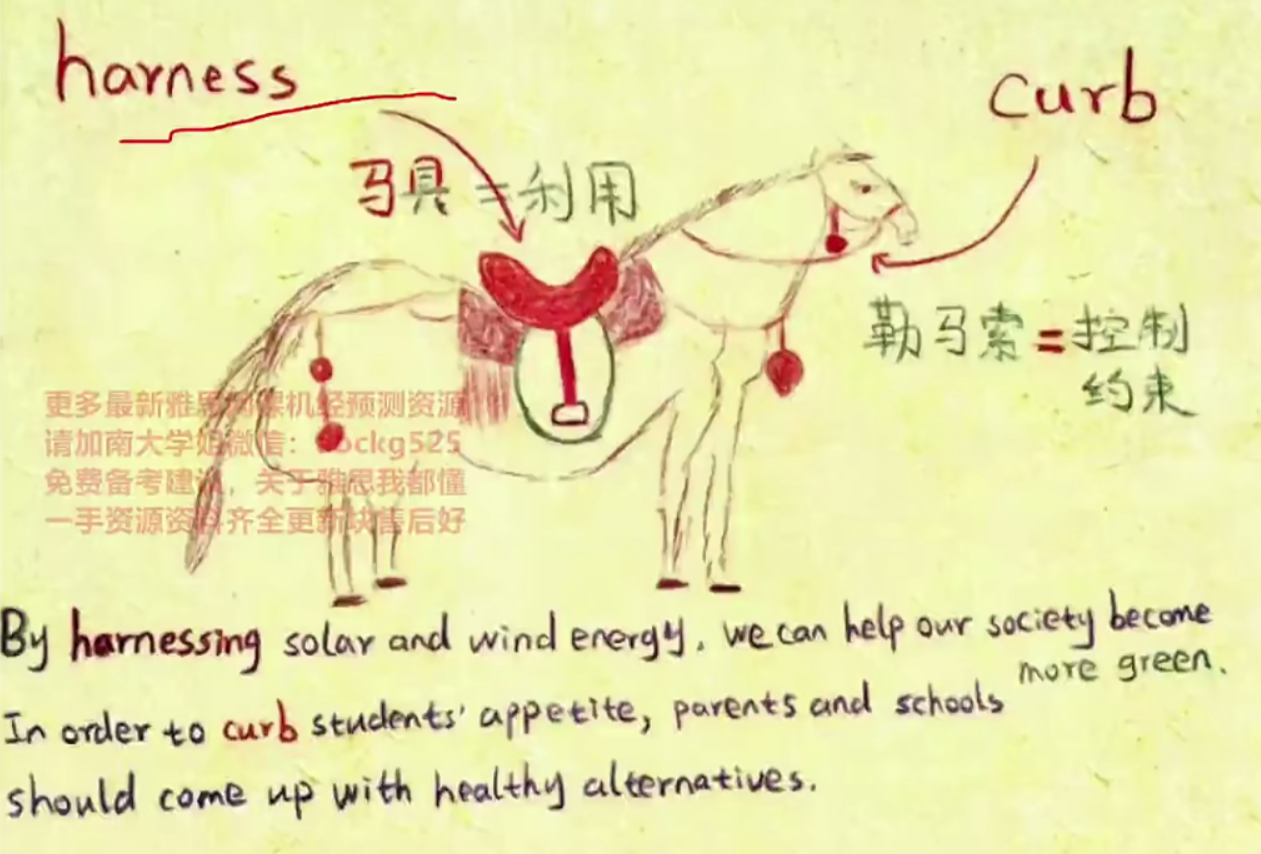 harness
curb
马具=利用
勒马索=控制
约束
更多最新雅思网课机经预测资源
请加南大学姐微信:ockg525
免费备考建议,关于雅思我都懂
一手资源资料齐全更新块售后好
By harnessing solar and wind energy, we can help our society become
more green.
In order to curb students' appetite, parents and schools
should come up with healthy alternatives.